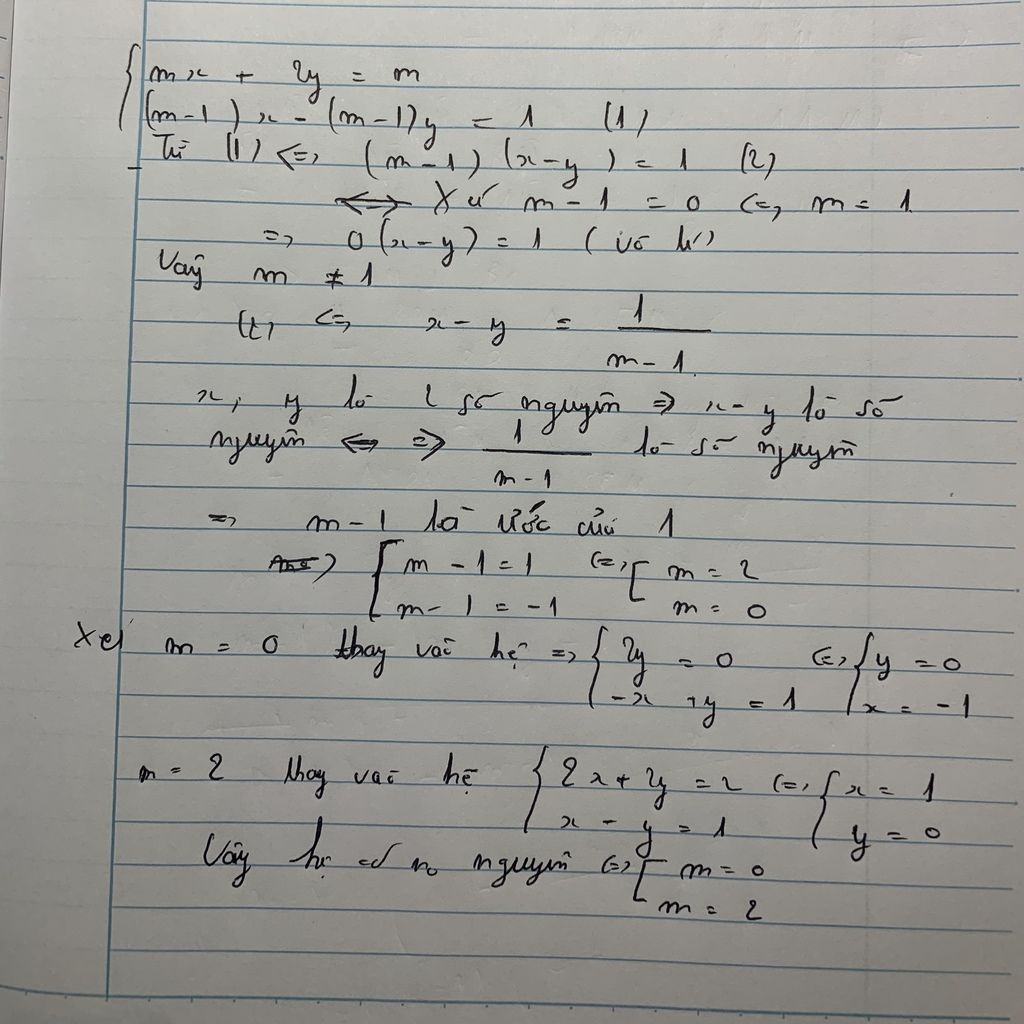 { mx + 2y = m
(m-1)x - (m-1)y = 1 (1)
Từ (1) <=> (m-1)(x-y) = 1 (2)
<=> Xét m-1 = 0 <=> m = 1
=> 0(x-y) = 1 (vô lí)
Vậy m ≠ 1
(2) <=> x - y = 1/(m-1)
x, y là 2 số nguyên => x-y là số
nguyên <=> => 1/(m-1) là số nguyên
=> m-1 là ước của 1
=> [ m - 1 = 1 <=> [ m = 2
m - 1 = -1 m = 0
Xét m = 0 thay vào hệ => { 2y = 0 <=> { y = 0
-x + y = 1 x = -1
m = 2 thay vào hệ { 2x + 2y = 2 <=> { x = 1
x - y = 1 y = 0
Vậy hệ có no nguyên <=> [ m = 0
m = 2